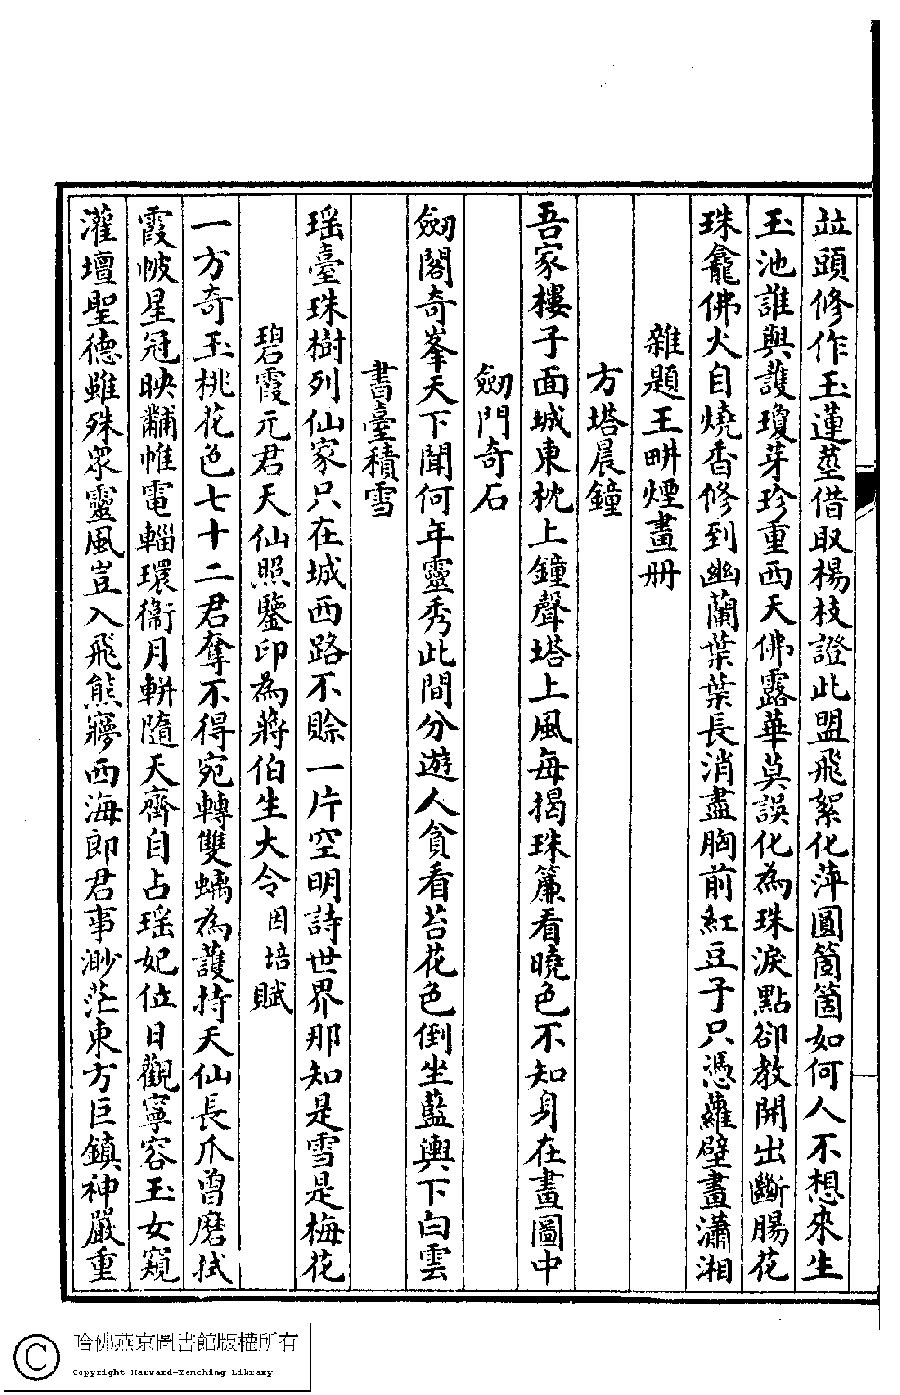 竝頭修作玉蓮莖借取楊枝證此盟飛絮化萍圓箇箇如何人不想來生
玉池誰與護瓊芽珍重西天佛露華莫誤化為珠淚點卻教開出斷腸花
珠龕佛火自燒香修到幽蘭葉葉長消盡胸前紅豆子只憑蘿壁畫瀟湘
雜題王畊煙畫册
方塔晨鐘
吾家樓子面城東枕上鐘聲塔上風每揭珠簾看曉色不知身在畫圖中
劒門奇石
劒閣奇峯天下聞何年靈秀此間分遊人貪看苔花色倒坐藍輿下白雲
書臺積雪
瑶臺珠樹列仙家只在城西路不賒一片空明詩世界那知是雪是梅花
碧霞元君天仙照鑒印為蔣伯生大令因培賦
一方奇玉桃花色七十二君奪不得宛轉雙螭為護持天仙長爪曾磨拭
霞帔星冠映黼帷電輜環衞月軿隨天齊自占瑶妃位日觀寧容玉女窺
灌壇聖德雖殊衆靈風豈入飛熊寢西海郎君事渺茫東方巨鎮神嚴重
哈佛燕京圖書館版權所有
Copyright Harvard-Yenching Library